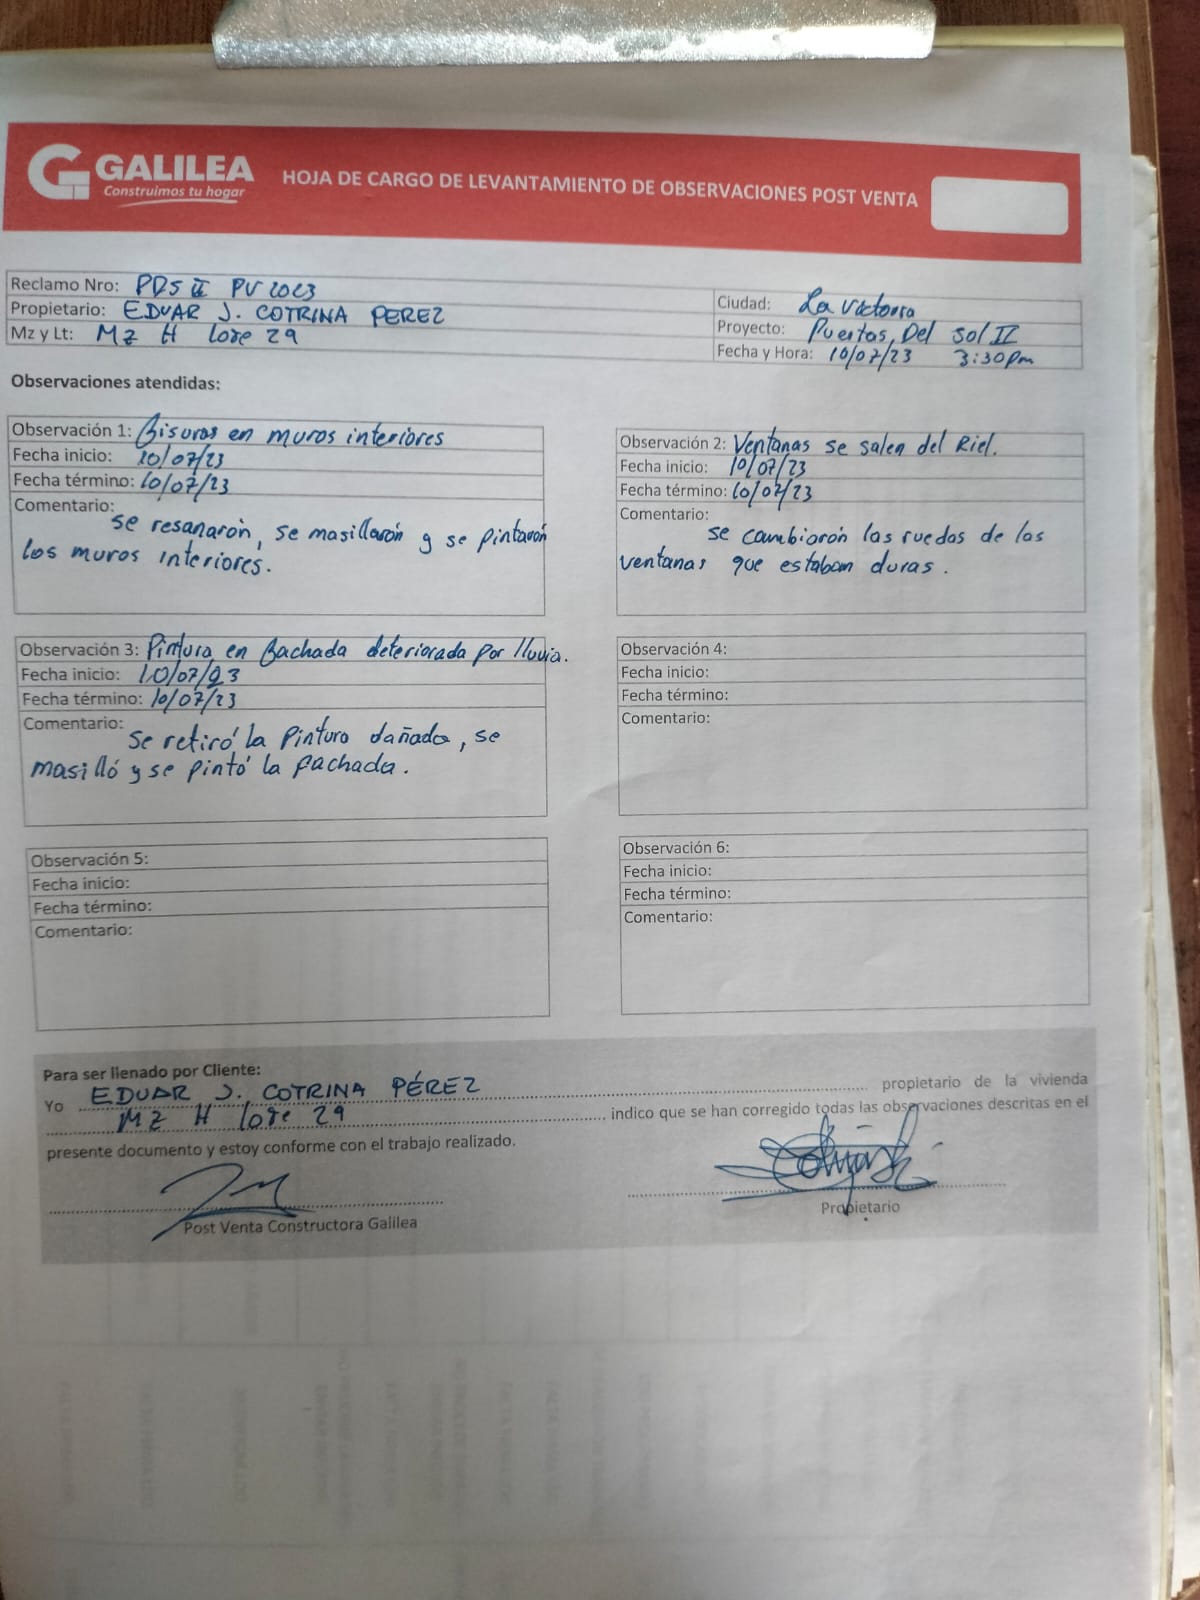 GALILEA
Construimos tu hogar
HOJA DE CARGO DE LEVANTAMIENTO DE OBSERVACIONES POST VENTA
Reclamo Nro: PDS II PV 2023
Propietario: EDUAR J. COTRINA PEREZ
Mz y Lt: Mz H Lote 29
Ciudad: La Victoria
Proyecto: Puertas Del Sol II
Fecha y Hora: 10/07/23 3:30pm
Observaciones atendidas:
Observación 1: Fisuras en muros interiores
Fecha inicio: 10/07/23
Fecha término: 10/07/23
Comentario:
se resanarón, se masillarón y se pintarón
los muros interiores.
Observación 2: Ventanas se salen del Riel.
Fecha inicio: 10/07/23
Fecha término: 10/07/23
Comentario:
se cambiorón las ruedas de las
ventanas que estaban duras.
Observación 3: Pintura en fachada deteriorada por lluvia.
Fecha inicio: 10/07/23
Fecha término: 10/07/23
Comentario:
Se retiró la Pintura dañada, se
masilló y se pintó la fachada.
Observación 4:
Fecha inicio:
Fecha término:
Comentario:
Observación 5:
Fecha inicio:
Fecha término:
Comentario:
Observación 6:
Fecha inicio:
Fecha término:
Comentario:
Para ser llenado por Cliente:
Yo EDUAR J. COTRINA PÉREZ propietario de la vivienda
Mz H lote 29 indico que se han corregido todas las observaciones descritas en el
presente documento y estoy conforme con el trabajo realizado.
Post Venta Constructora Galilea
Propietario